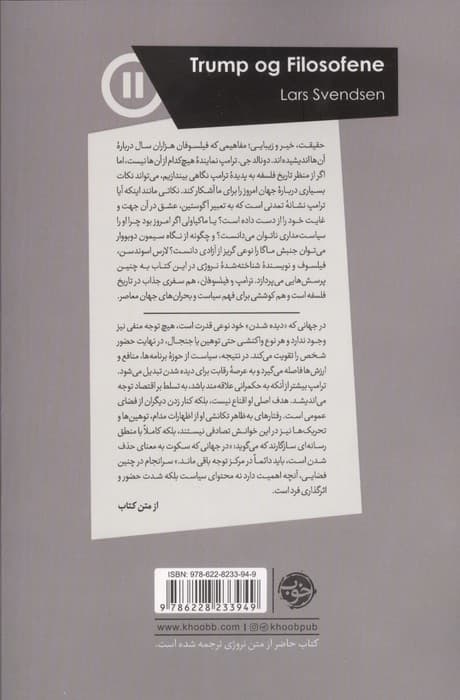 Trump og Filosofene
Lars Svendsen
حقیقت، خیر و زیبایی؛ مفاهیمی که فیلسوفان هزاران سال دربارهٔ
آن‌ها اندیشیده‌اند. دونالد جی. ترامپ نمایندهٔ هیچ‌کدام از آن‌ها نیست، اما
اگر از منظر تاریخ فلسفه به پدیدهٔ ترامپ نگاهی بیندازیم، می‌تواند نکات
بسیاری دربارهٔ جهان امروز را برای ما آشکار کند. نکاتی مانند اینکه آیا
ترامپ نشانهٔ تمدنی است که به تعبیر آگوستین، عشق در آن جهت و
غایت خود را از دست داده است؟ یا ماکیاولی اگر امروز بود چرا او را
سیاست‌مداری ناتوان می‌دانست؟ و چگونه از نگاه سیمون دوبووار
می‌توان جنبش ماگا را نوعی گریز از آزادی دانست؟ لارس اسوندسن،
فیلسوف و نویسندهٔ شناخته‌شدهٔ نروژی در این کتاب به چنین
پرسش‌هایی می‌پردازد. ترامپ و فیلسوفان، هم سفری جذاب در تاریخ
فلسفه است و هم کوششی برای فهم سیاست و بحران‌های جهان معاصر.
در جهانی که «دیده شدن» خود نوعی قدرت است، هیچ توجه منفی نیز
وجود ندارد و هر نوع واکنشی حتی توهین یا جنجال، در نهایت حضور
شخص را تقویت می‌کند. در نتیجه، سیاست از حوزهٔ برنامه‌ها، منافع و
ارزش‌ها فاصله می‌گیرد و به عرصهٔ رقابت برای دیده شدن تبدیل می‌شود.
ترامپ بیشتر از آنکه به حکمرانی علاقه‌مند باشد، به تسلط بر اقتصاد توجه
می‌اندیشد. هدف اصلی او اقناع نیست، بلکه کنار زدن دیگران از فضای
عمومی است. رفتارهای به‌ظاهر تکانشی او از اظهارات مدام، توهین‌ها و
تحریک‌ها نیز در این خوانش تصادفی نیستند، بلکه کاملاً با منطق
رسانه‌ای سازگارند که می‌گوید: «در جهانی که سکوت به معنای حذف
شدن است، باید دائماً در مرکز توجه باقی ماند.» سرانجام در چنین
فضایی، آنچه اهمیت دارد نه محتوای سیاست بلکه شدت حضور و
اثرگذاری فرد است.
از متن کتاب
ISBN: 978-622-8233-94-9
9 786228 233949
خوب
www.khoobb.com | khoobpub
کتاب حاضر از متن نروژی ترجمه شده است.